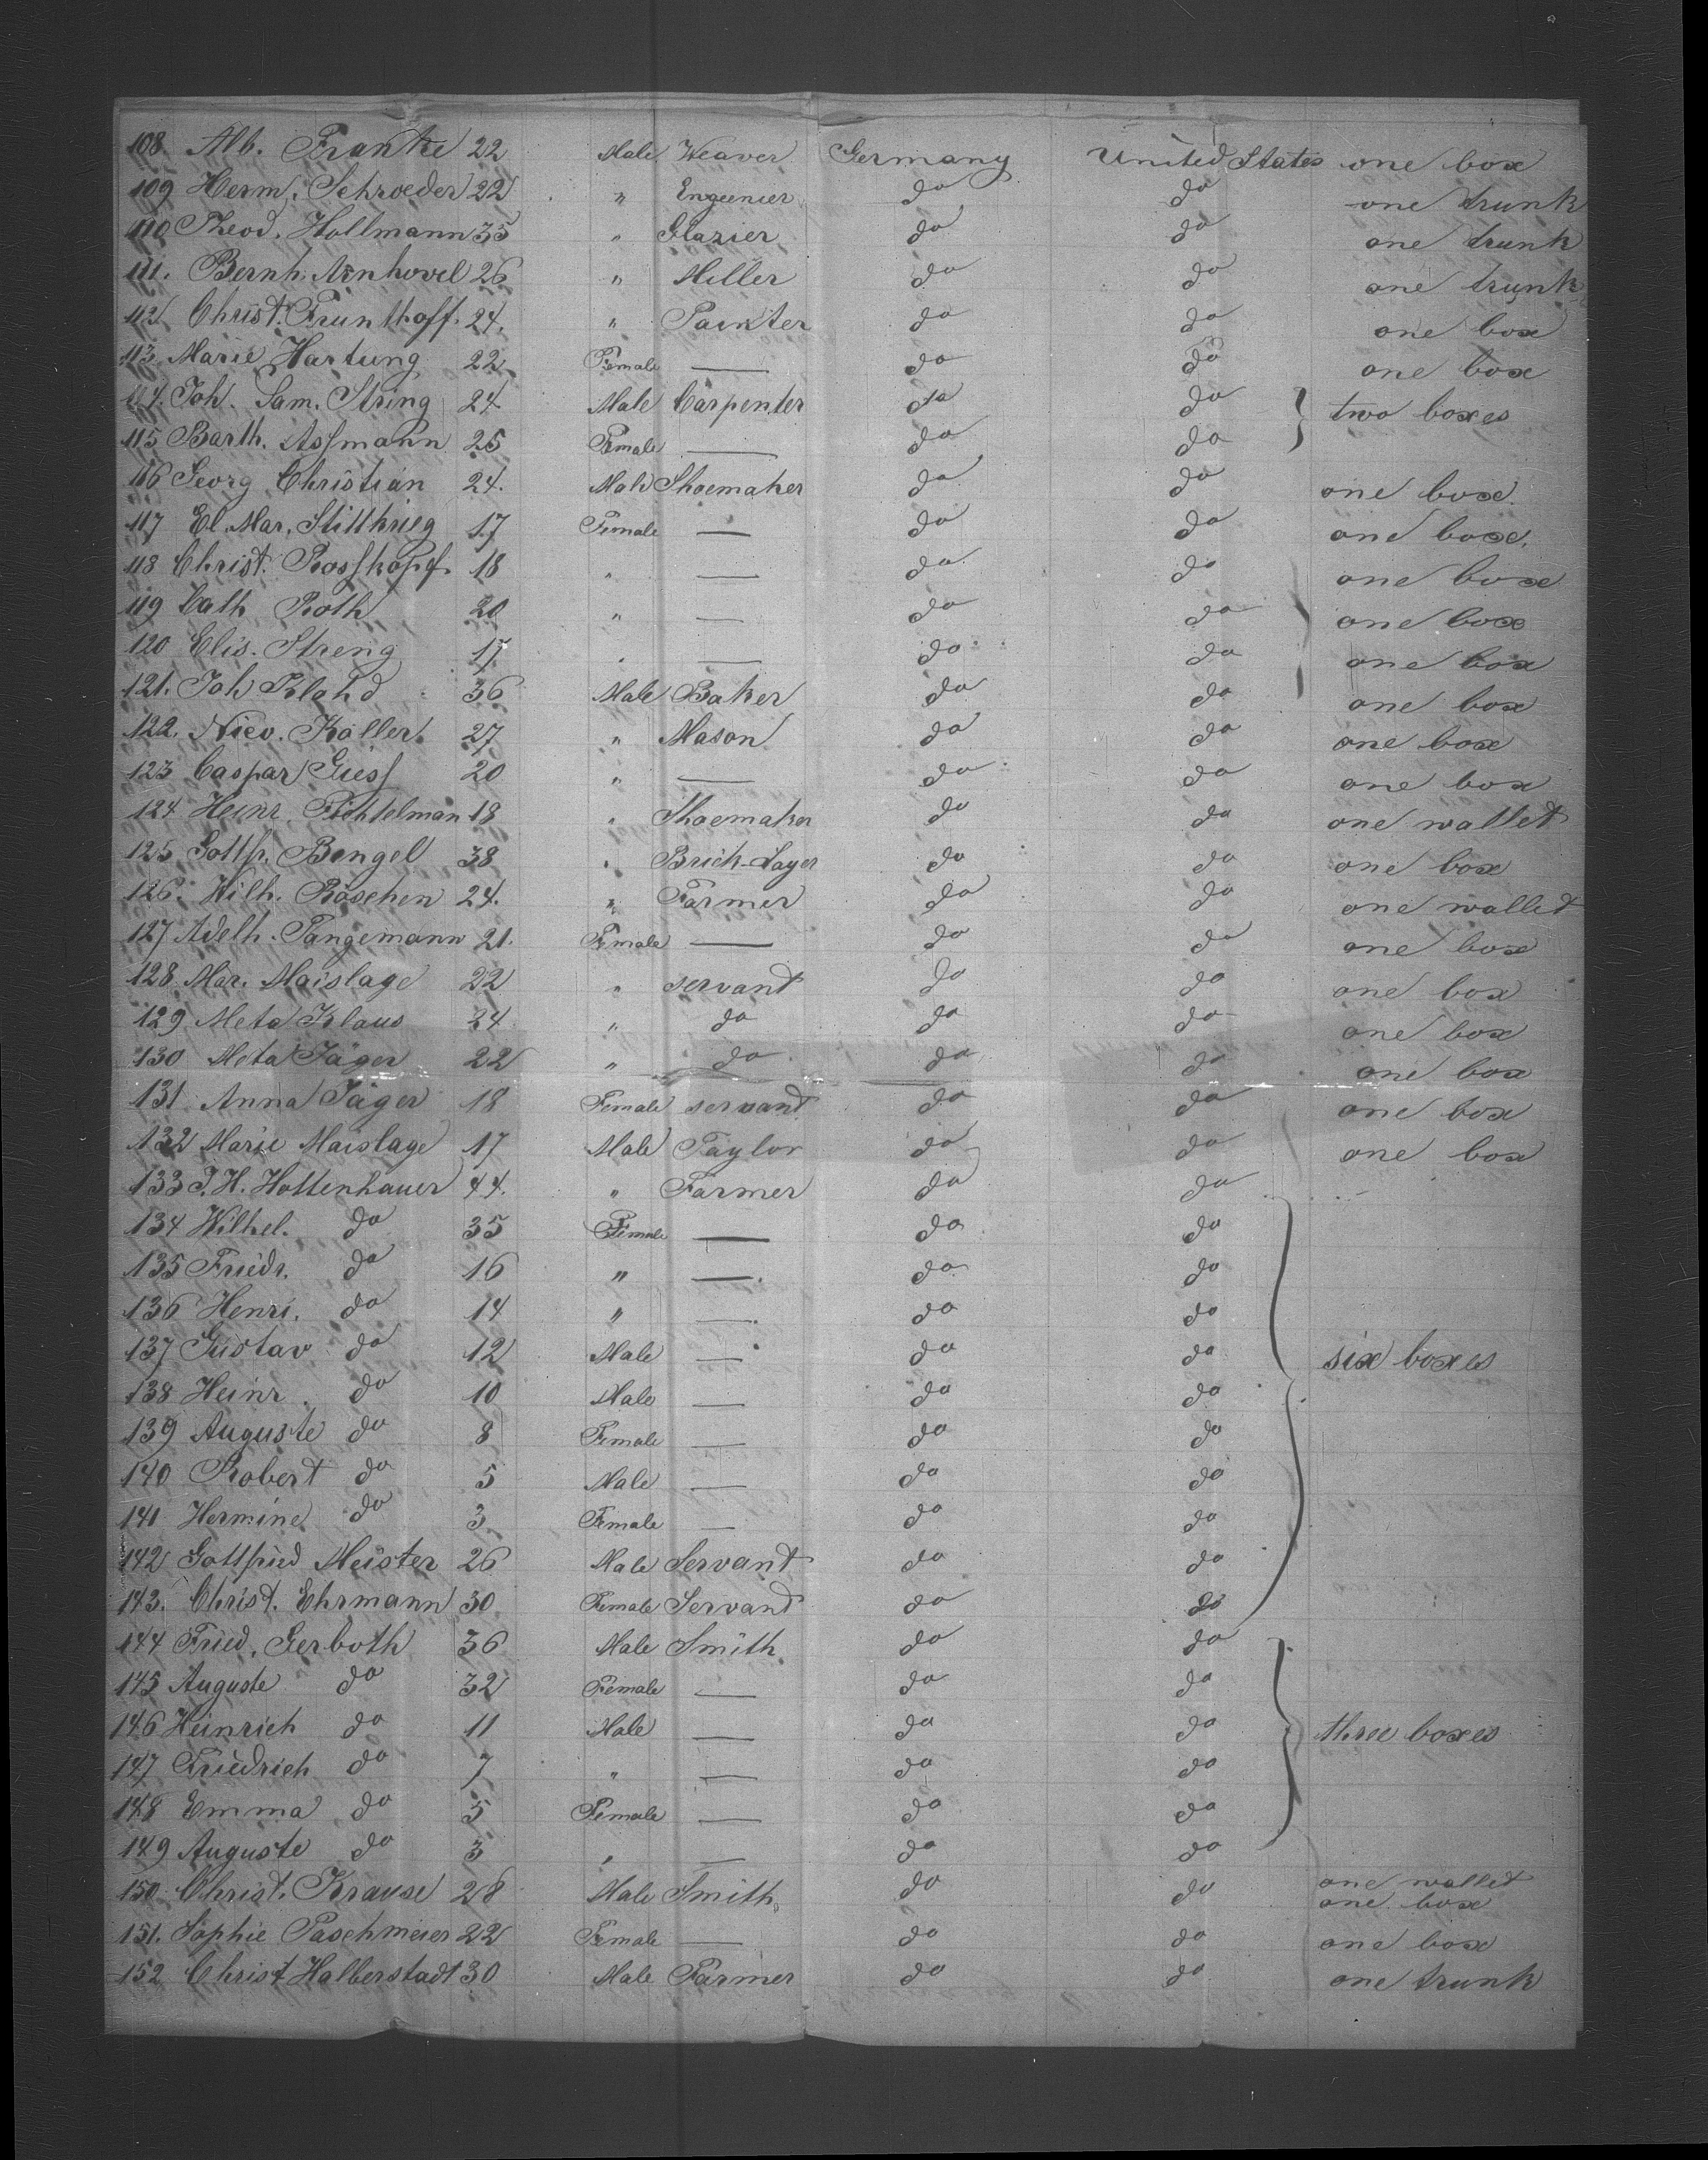 108 Alb. Franke 22 Male Weaver Germany United States one box
109 Herm. Schroeder 22 " Engeenier do do one trunk
110 Theod. Hollmann 35 " Glazier do do one trunk
111. Bernh. Arnhovel 26 " Miller do do one trunk
112 Christ. Frunthoff. 24. " Painter do do one box
113. Marie Hartung 22 Female — do do one box
114. Joh. Sam. String 24 Male Carpenter do do two boxes
115 Barth. Assmann 25 Female — do do
116 Georg Christian 24. Male Shoemaker do do one box
117 El. Mar. Stillkrieg 17 Female — do do one box.
118 Christ. Rosskopf. 18 " — do do one box
119 Cath Roth 20 " — do do one box
120 Elis. Streng 17 " — do do one box
121. Joh 36 Male Baker do do one box
122. Nico. Koller 27 " Mason do do one box
123 Caspar Giess 20 " — do do one box
124 Heinr. Fichtelman 18 " Shoemaker do do one wallet
125 Gottfr. Bengel 38 " Brick-Layer do do one box
126. Wilh. Böschen 24. " Farmer do do one wallet
127 Adelh. Tangemann 21. Female — do do one box
128 Mar. Maislage 22 " servant do do one box
129 Meta Klaus 24 " do do do one box
130 Meta Jäger 22 " do do do one box
131 Anna Jäger 18 Female servant do do one box
132 Marie Maislage 17 Male Taylor do do one box
133 J. H. Hottenhauer 44. " Farmer do do
134 Wilhel. do 35 Female — do do
135 Friedr. do 16 " — do do
136 Henri. do 14 " — do do
137 Gustav do 12 Male — do do six boxes
138 Heinr. do 10 Male — do do
139 Auguste do 8 Female — do do
140 Robert do 5 Male — do do
141 Hermine do 3 Female — do do
142 Gottfried Meister 26 Male Servant do do
143. Christ. Ehrmann 30 Female Servant do do
144 Fried. Gerboth 36 Male Smith do do
145 Auguste do 32 Female — do do
146 Heinrich do 11 Male — do do three boxes
147 Friedrich do 7 " — do do
148 Emma do 5 Female — do do
149 Auguste do 3 " — do do
150 Christ. Krause 28 Male Smith do do one wallet
one box
151. Sophie Paschmeier 22 Female — do do one box
152 Christ Halberstadt 30 Male Farmer do do one trunk